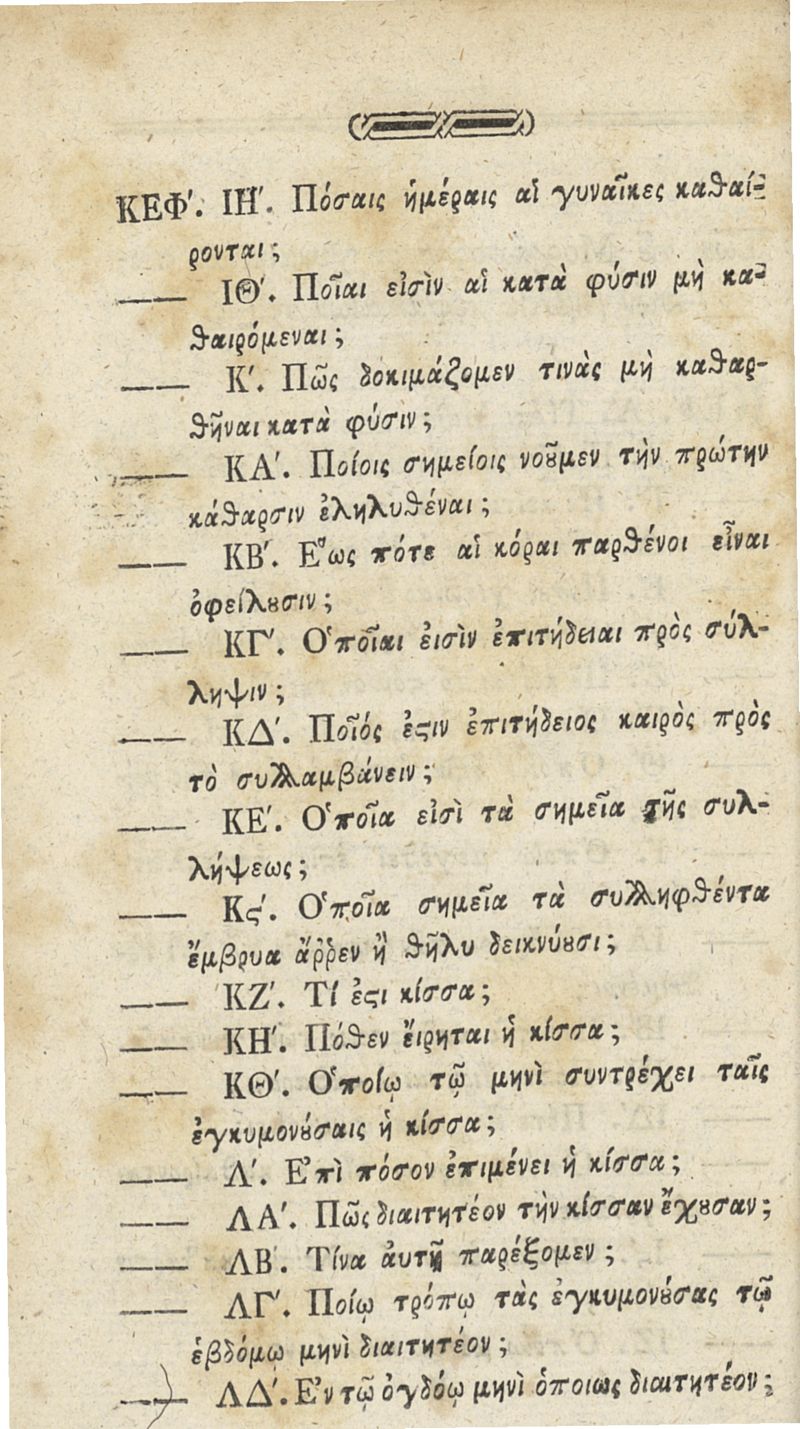 ΚΕΦʹ. ΙΗʹ. Πόσαις ἡμέραις αἱ γυναῖκες καθαί-
ρονται;
—— ΙΘʹ. Ποῖαι εἰσὶν αἱ κατὰ φύσιν μὴ κα-
θαιρόμεναι;
—— Κʹ. Πῶς δοκιμάζομεν τινὰς μὴ καθαρ-
θῆναι κατὰ φύσιν;
—— ΚΑʹ. Ποίοις σημείοις νοȣ͂μεν τὴν πρώτην
κάθαρσιν ἐληλυθέναι;
—— ΚΒʹ. Ἕως πότε αἱ κόραι παρθένοι εἶναι
ὀφείλȣσιν;
—— ΚΓʹ. Ὁποῖαι ἐισὶν ἐπιτήδειαι πρὸς σύλ-
ληψιν;
—— ΚΔʹ. Ποῖός ἐϛιν ἐπιτήδειος καιρὸς πρὸς
τὸ συλλαμβάνειν;
—— ΚΕʹ. Ὁποῖα εἰσὶ τὰ σημεῖα τῆς συλ-
λήψεως;
—— Κϛʹ. Ὁποῖα σημεῖα τὰ συλληφθέντα
ἔμβρυα ἄῤῥεν ἢ θῆλυ δεικνύȣσι;
—— ΚΖʹ. Τί ἐϛι κίσσα;
—— ΚΗʹ. Πόθεν ἔιρηται ἡ κίσσα;
—— ΚΘʹ. Ὁποίῳ τῷ μηνὶ συντρέχει ταῖς
ἐγκυμονȣ́σαις ἡ κίσσα;
—— Λʹ. Ἐπὶ πόσον ἐπιμένει ἡ κίσσα;
—— ΛΑʹ. Πῶς διαιτητέον τὴν κίσσαν ἔχȣσαν;
—— ΛΒʹ. Τίνα ἀυτῇ παρέξομεν;
—— ΛΓʹ. Ποίῳ τρόπῳ τὰς ἐγκυμονȣ́σας τῷ
ἑβδόμῳ μηνὶ διαιτητέον;
—— ΛΔʹ. Ἐν τῷ ὀγδόῳ μηνὶ ὁποιως διαιτητέον;